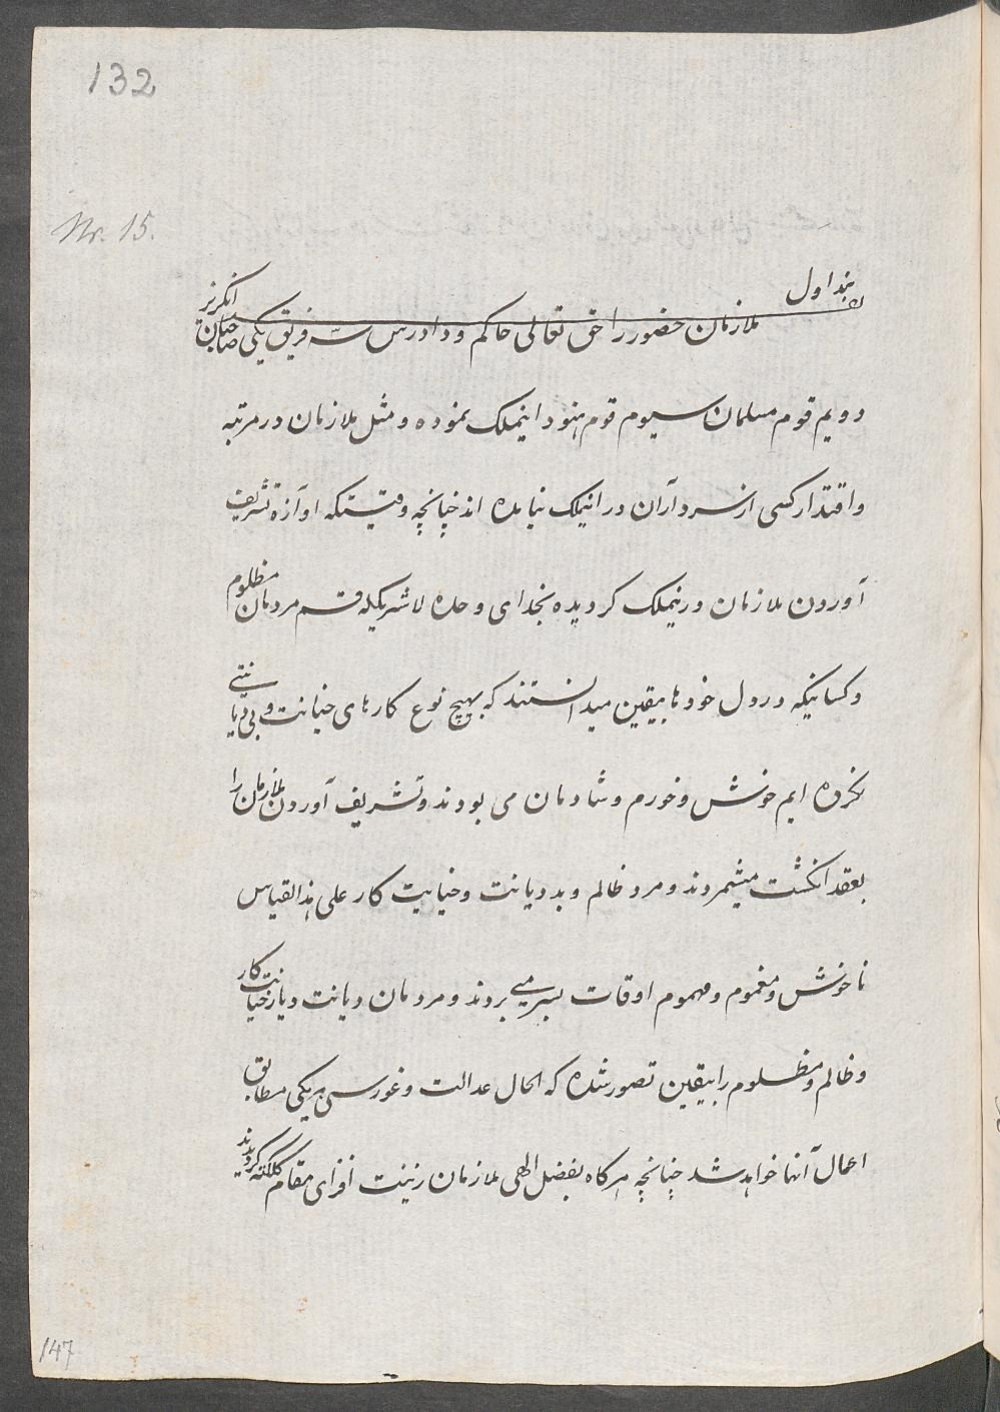 132
Nr. 15.
بند اول
ملازمان حضور را حق تعالی حاکم و دادرس سه فریق یکی صاحبان انگریز
دویم قوم مسلمان سیوم قوم هنود اینملک نموده و مثل ملازمان در مرتبه
و اقتدار کسی از سرداران در اینملک نیامده اند چنانچه وقتیکه آوازه تشریف
آوردن ملازمان درینملک کردیده بخدای وحده لاشریکله قسم مردمان مظلوم
و کسانیکه در دل خودها بیقین میدانستند که بهیچ نوع کارهای خیانت و بی دیانتی
نکرده ایم خوش و خورم و شادمان می بودند و تشریف آوردن ملازمان را
بعقد انکشت میشمردند و مرد ظالم و بد دیانت و خیانت کار علی هذالقیاس
ناخوش و مغموم و مهموم اوقات بسر می بردند و مردمان دیانت دیار خیانت کار
و ظالم و مظلوم را بیقین تصور شده که الحال عدالت و غوررسی هریکی مطابق
اعمال آنها خواهد شد چنانچه هرکاه بفضل الهی ملازمان زینت افزای مقام کلکته کردیدند
147